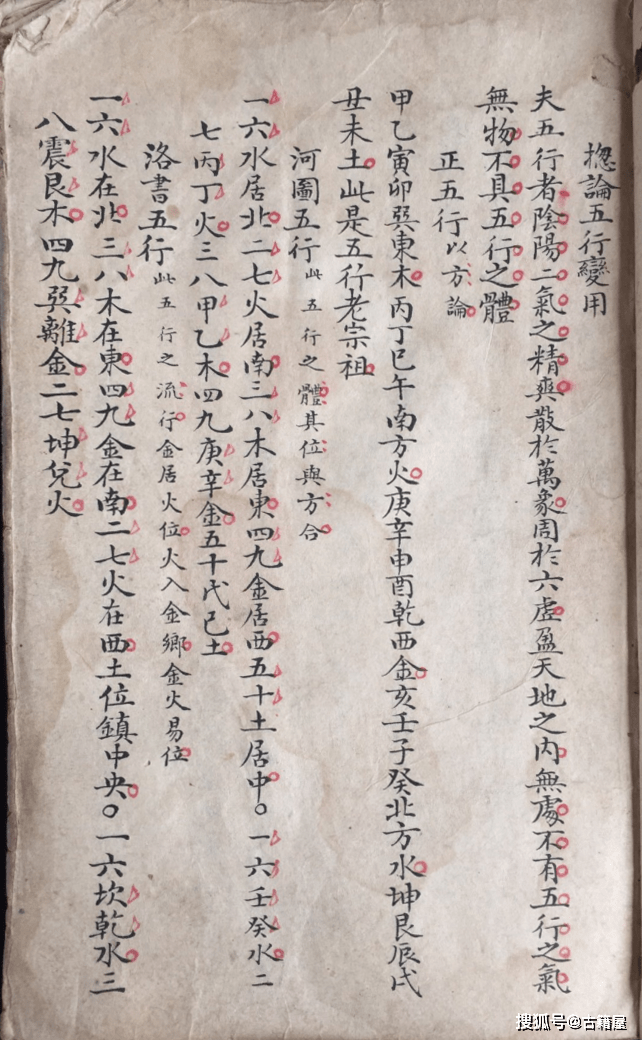 揔論五行變用
夫五行者陰陽二氣之精爽散於萬象周於六虛盈天地之内無處不有五行之氣
無物不具五行之體
正五行以方論
甲乙寅卯巽東木丙丁巳午南方火庚辛申酉乾西金亥壬子癸北方水坤艮辰戌
丑未土此是五行老宗祖
河圖五行此五行之體其位與方合
一六水居北二七火居南三八木居東四九金居西五十土居中○一六壬癸水二
七丙丁火三八甲乙木四九庚辛金五十戊己土
洛書五行此五行之流行金居火位火入金鄉金火易位
一六水在北三八木在東四九金在南二七火在西土位鎮中央○一六坎乾水三
八震艮木四九巽離金二七坤兌火
搜狐号@古籍屋